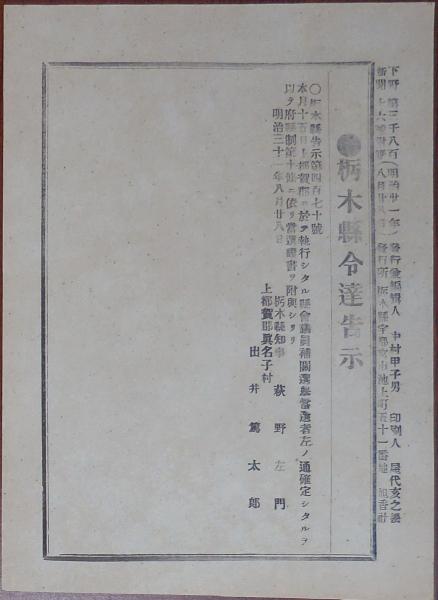 下野 第三千八百
新聞
明治卅一年
八月廿八日
發行兼編輯人 中村甲子男 印刷人 屋代亥之
發行所 栃木縣宇都宮市池上町五十一番地 旭香社
栃木縣令達告示
〇栃木縣告示第四百七十號
本月十五日上都賀郡ニ於テ執行シタル縣會議員補闕選擧當選者左ノ通確定シタルヲ
以テ府縣制第十條ニ依リ當選證書ヲ附與シタリ
明治三十一年八月廿八日
栃木縣知事 萩野左門
上都賀郡眞名子村
出井篤太郎